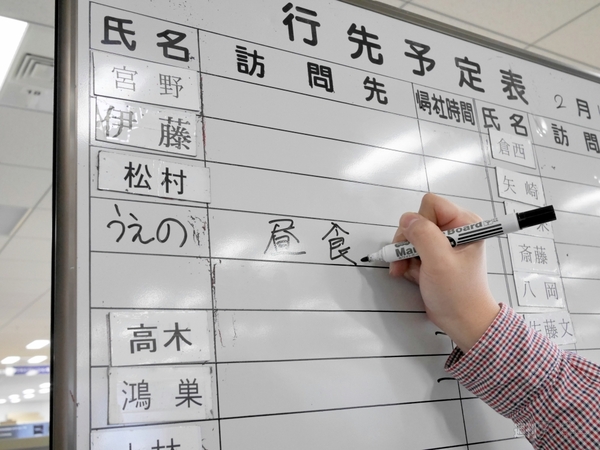 行先予定表
2月
氏名 訪問先 帰社時間 氏名 訪問
宮野 倉西
伊藤 矢崎
松村
うえの 昼食 斎藤
八岡
高木 佐藤文
鴻巣
Board